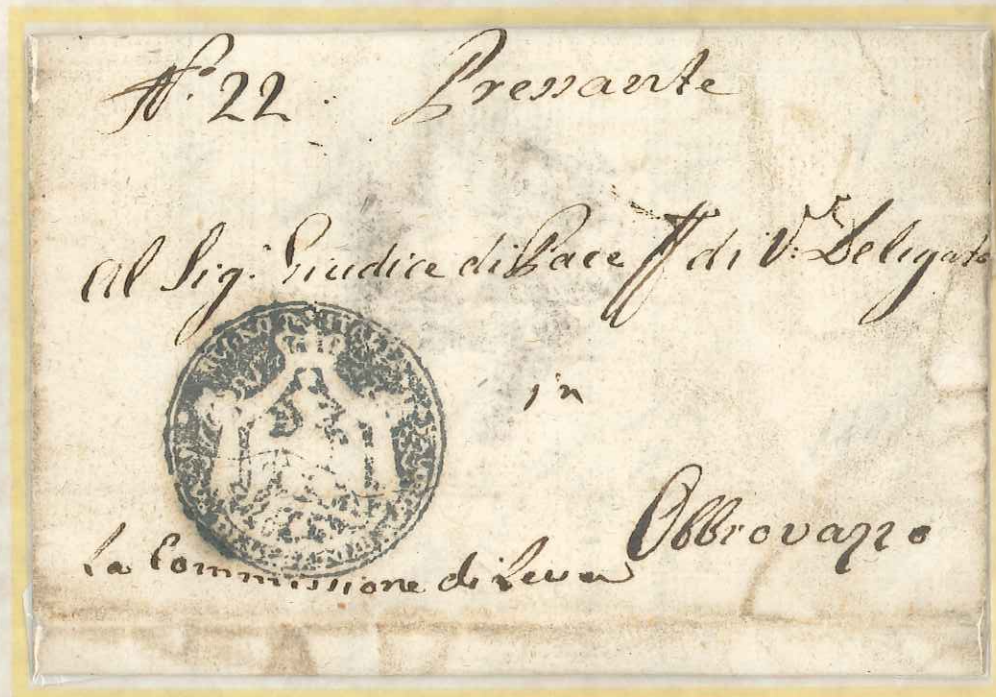 N.º 22. Pressante
Al Sig.r Giudice di Pace ff di V.e Delegato
in
Obbrovazzo
La Commissione di Leva